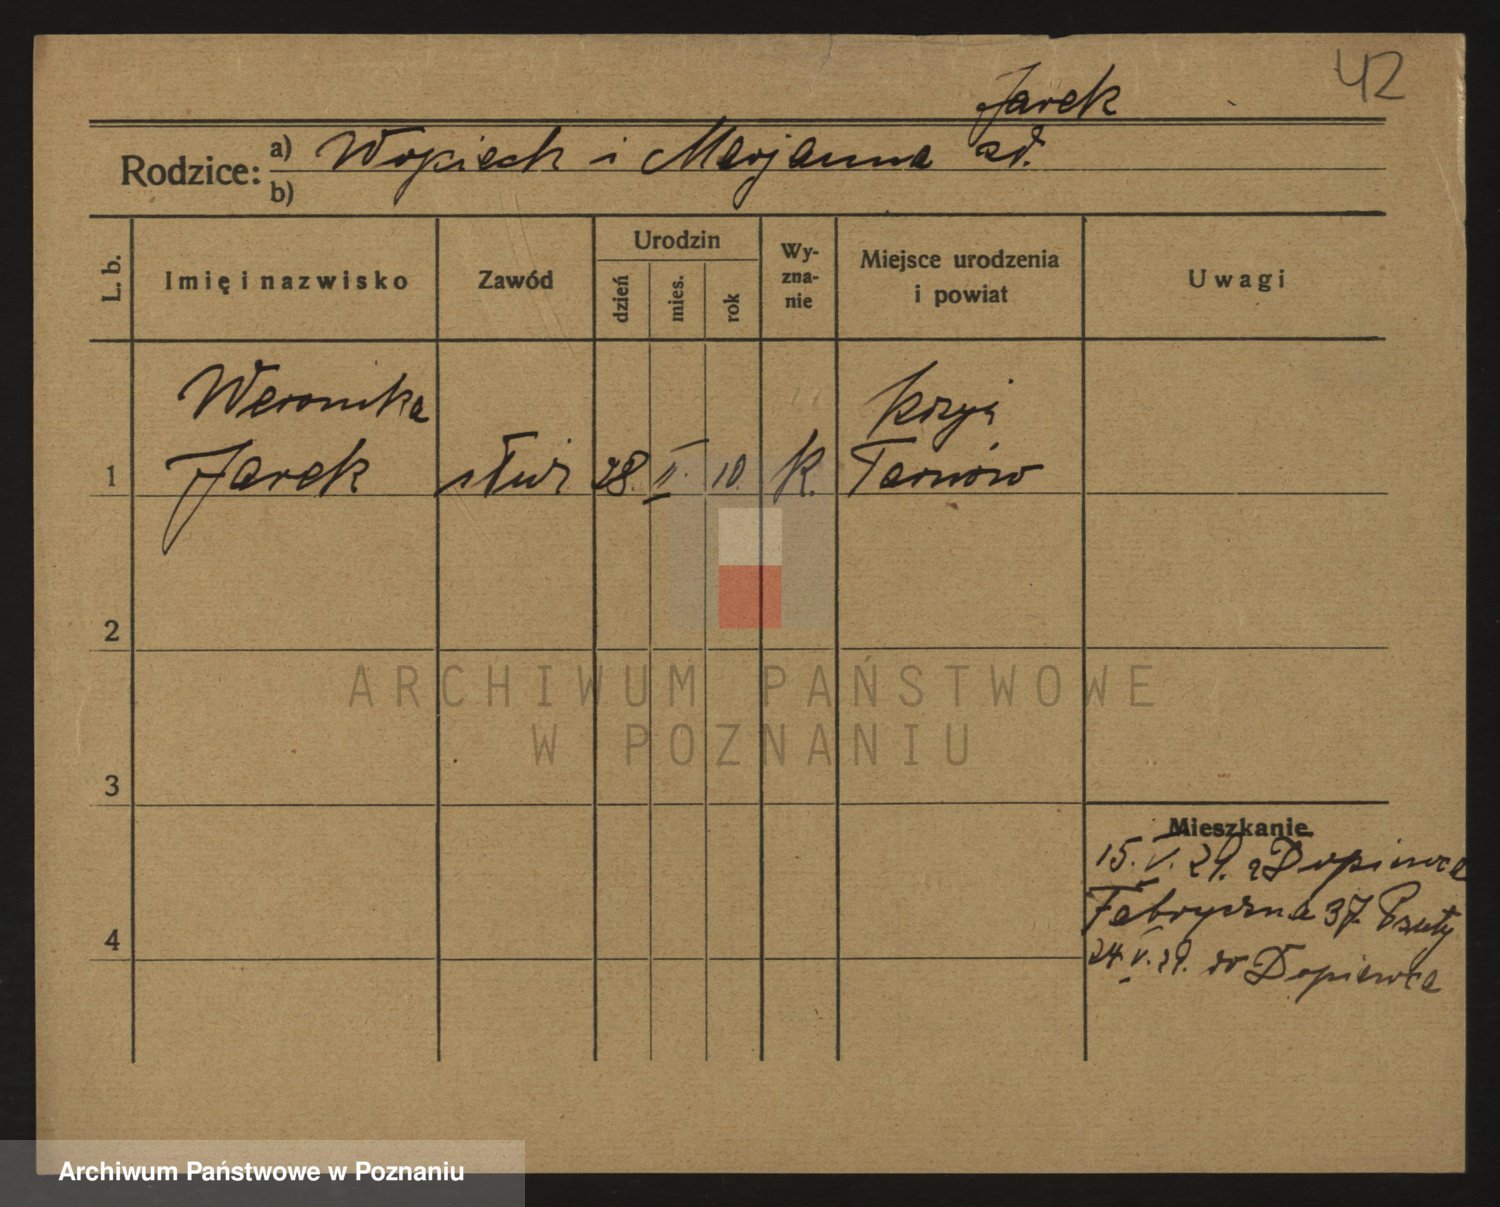 42
Jarek
Rodzice: a) Wojciech i Marjanna zd.
b)
L. b.
Imię i nazwisko
Zawód
Urodzin
dzień
mies.
rok
Wy-
zna-
nie
Miejsce urodzenia
i powiat
Uwagi
Weronika
1 Jarek służ 28. II. 10. K. Tarnów
2
3
4
Mieszkanie
15. V. 29. z Dopiewca
Fabryczna 37.
24. V. 29. do Dopiewca
ARCHIWUM PAŃSTWOWE
W POZNANIU
Archiwum Państwowe w Poznaniu